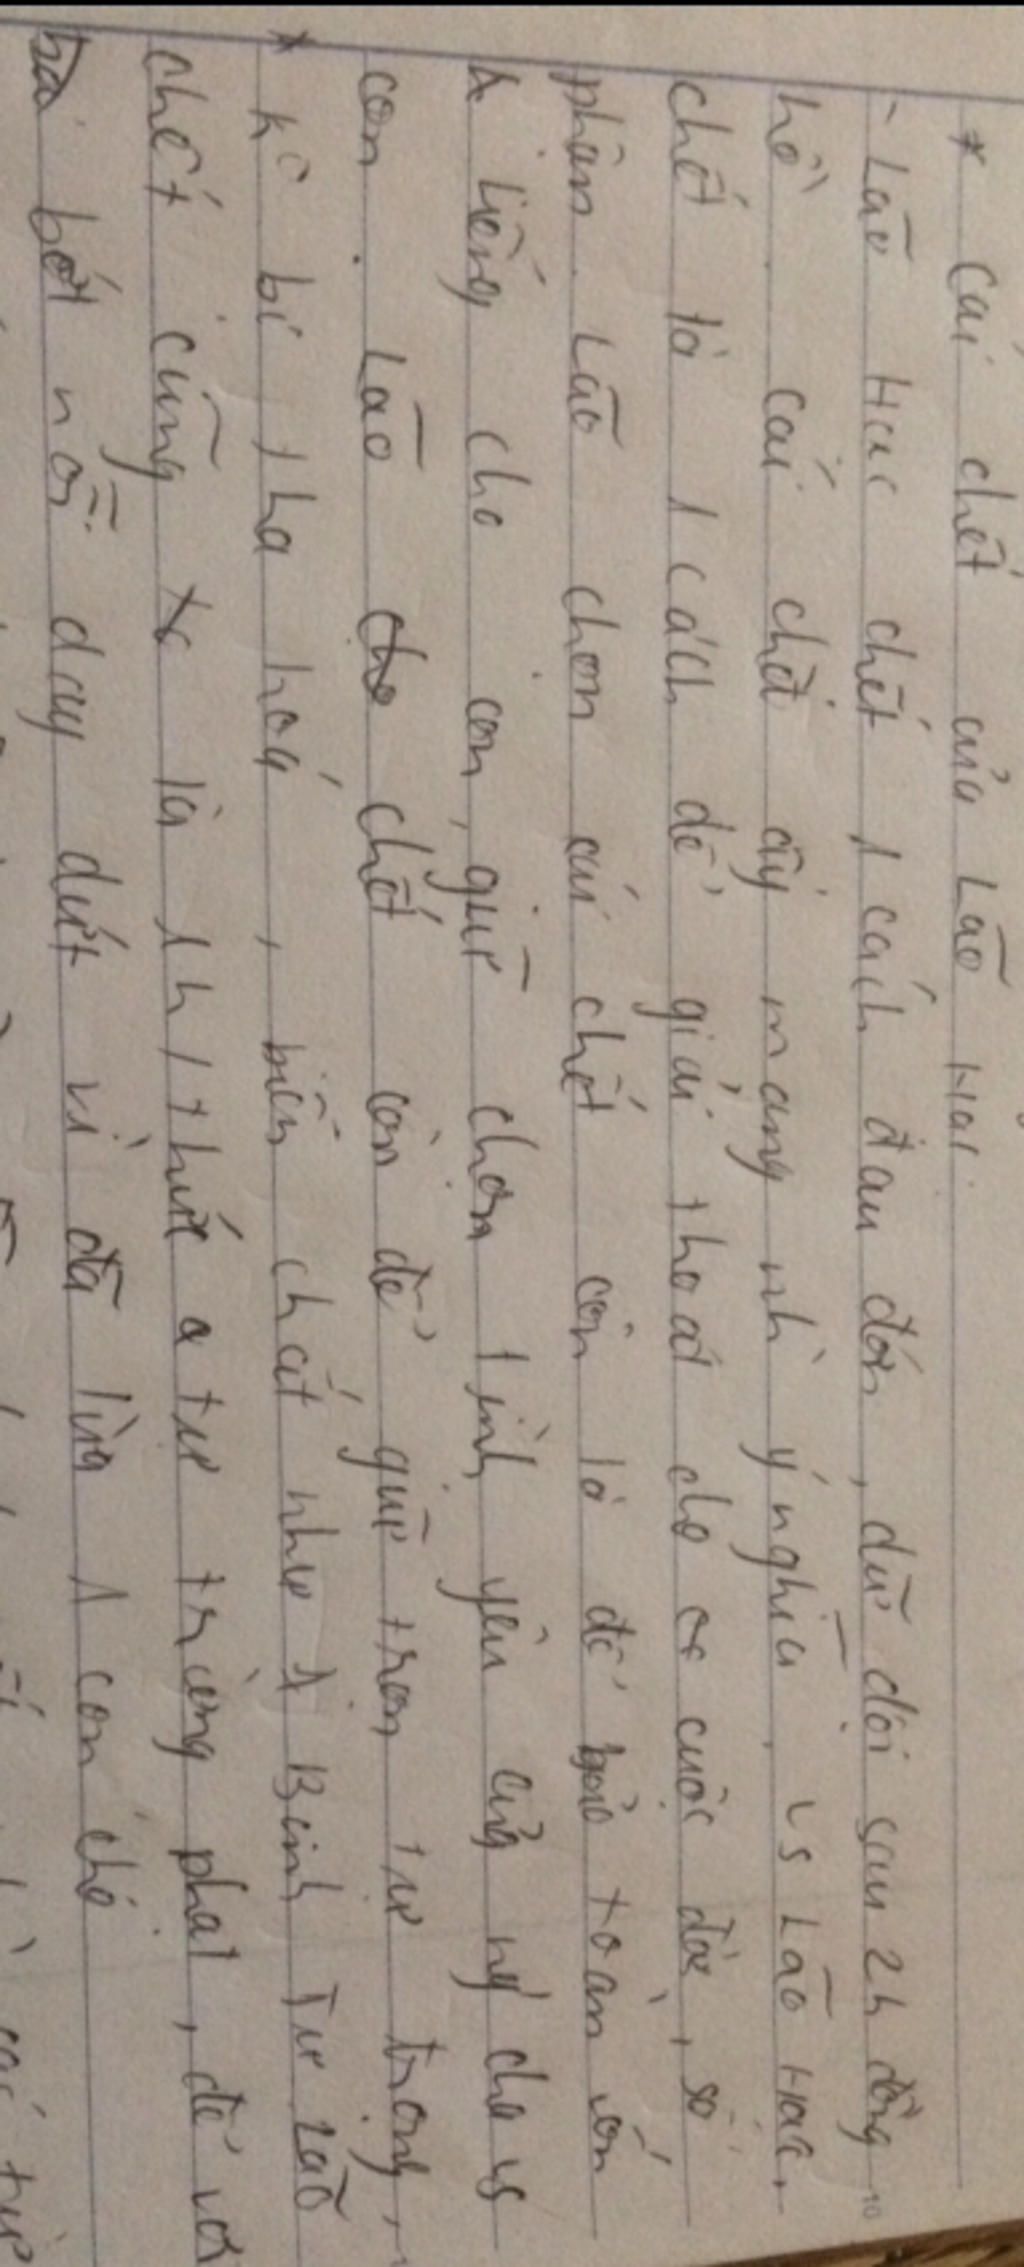 * Cái chết của Lão Hạc
- Lão Hạc chết 1 cách đau đớn, dữ dội sau 2h đồng
hồ. cái chết ấy mang nh` ý nghĩa. vs Lão Hạc,
chết là 1 cách để giải thoát cho cuộc đời, số
phận. Lão chọn cái chết còn là để bảo toàn vốn
liếng cho con, giữ chọn tình yêu của ng` cha vs
con. Lão chết còn để giữ trọn tư trọng,
k° bị tha hoá, biến chất như 1 Binh Tư Lão
chết cũng là 1 h/thức a tự trừng phạt, để vơi
bớt nỗi day dứt vì đã lừa 1 con chó